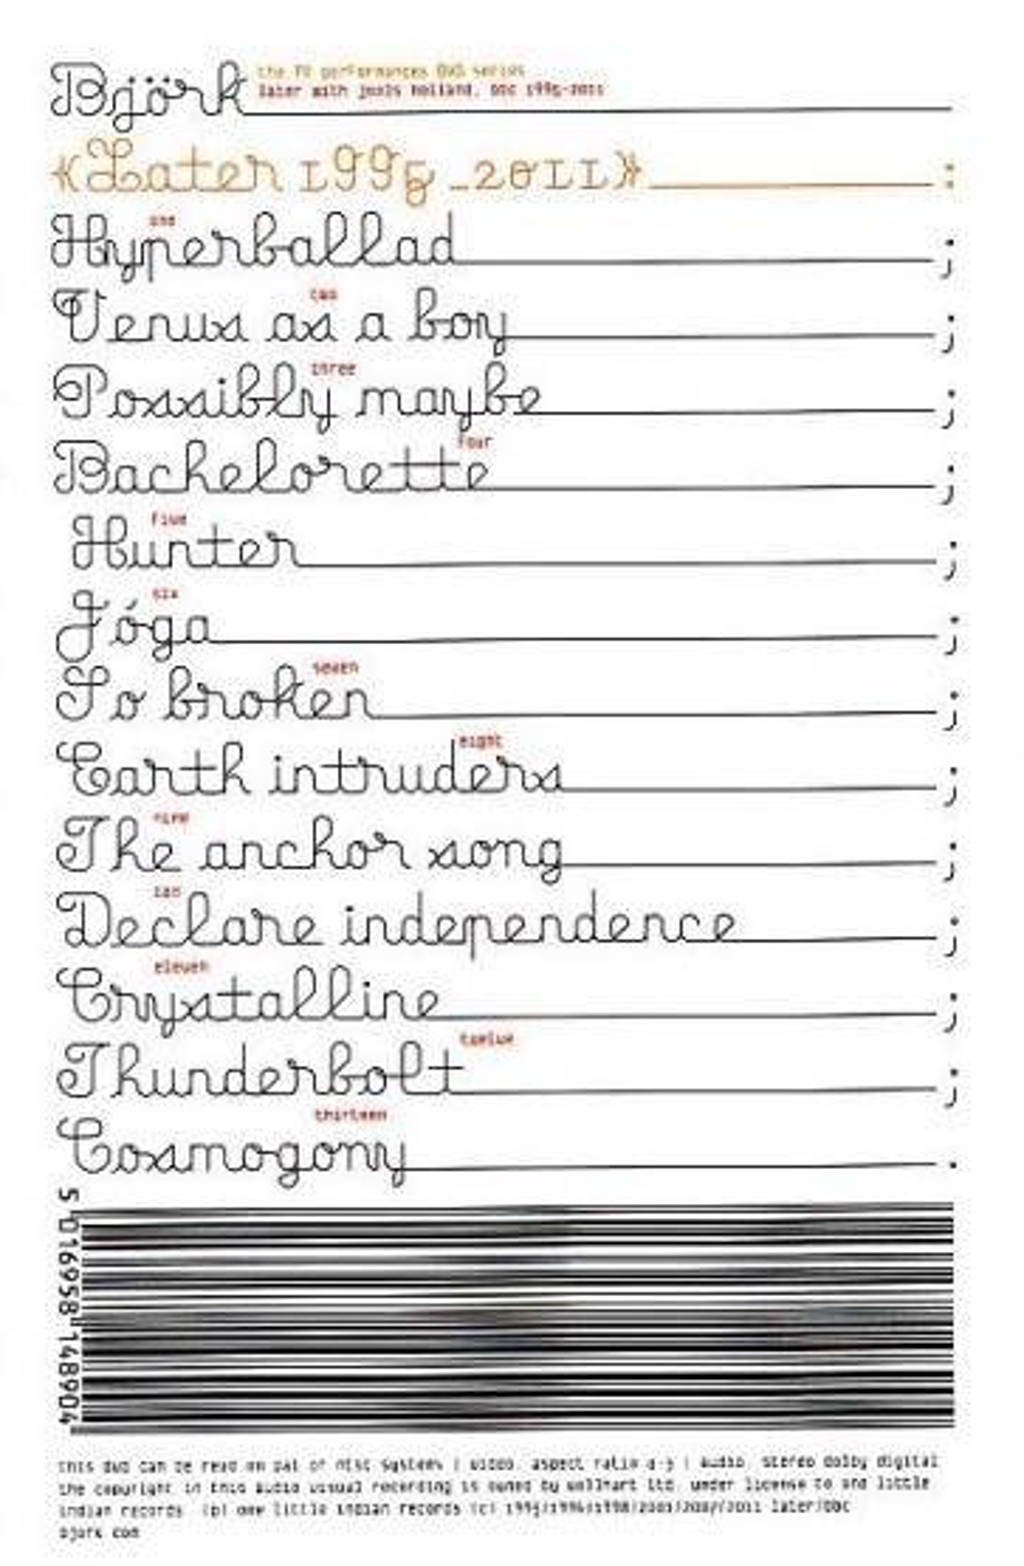 Björk
the TV performances DVD series
later with jools holland, BBC 1995-2011
《Later 1995_2011》:
one
Hyperballad;
two
Venus as a boy;
three
Possibly maybe;
four
Bachelorette;
five
Hunter;
six
Jóga;
seven
So broken;
eight
Earth intruders;
nine
The anchor song;
ten
Declare independence;
eleven
Crystalline;
twelve
Thunderbolt;
thirteen
Cosmogony.
5 016958 148904
this dvd can be read on pal or ntsc systems | video: aspect ratio 4:3 | audio: stereo dolby digital
the copyright in this audio visual recording is owned by wellhart ltd. under license to one little
indian records. (p) one little indian records (c) 1995/1996/1998/2001/2007/2011 later/bbc
bjork.com